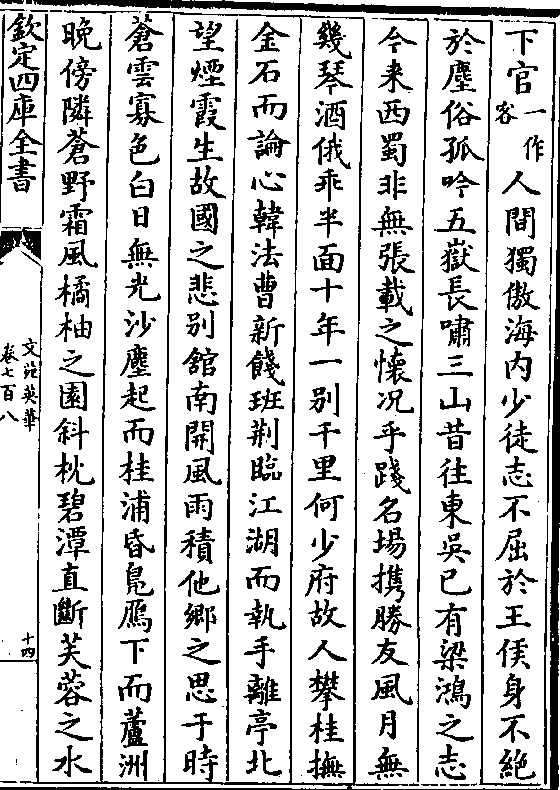 下官一作客人間獨傲海内少徒志不屈於王侯身不絶
於塵俗孤吟五嶽長嘯三山昔往東吳已有梁鴻之志
今来西蜀非無張載之懐况乎踐名場擕勝友風月無
幾琴酒俄乖半面十年一别千里何少府故人攀桂撫
金石而論心韓法曹新餞班荆臨江湖而執手離亭北
望煙霞生故國之悲别舘南開風雨積他鄉之思于時
蒼雲寡色白日無光沙塵起而桂浦昏鳧鴈下而蘆洲
晚傍隣蒼野霜風橘柚之園斜枕碧潭直斷芙蓉之水
欽定四庫全書
文苑英華
卷七百八
十四